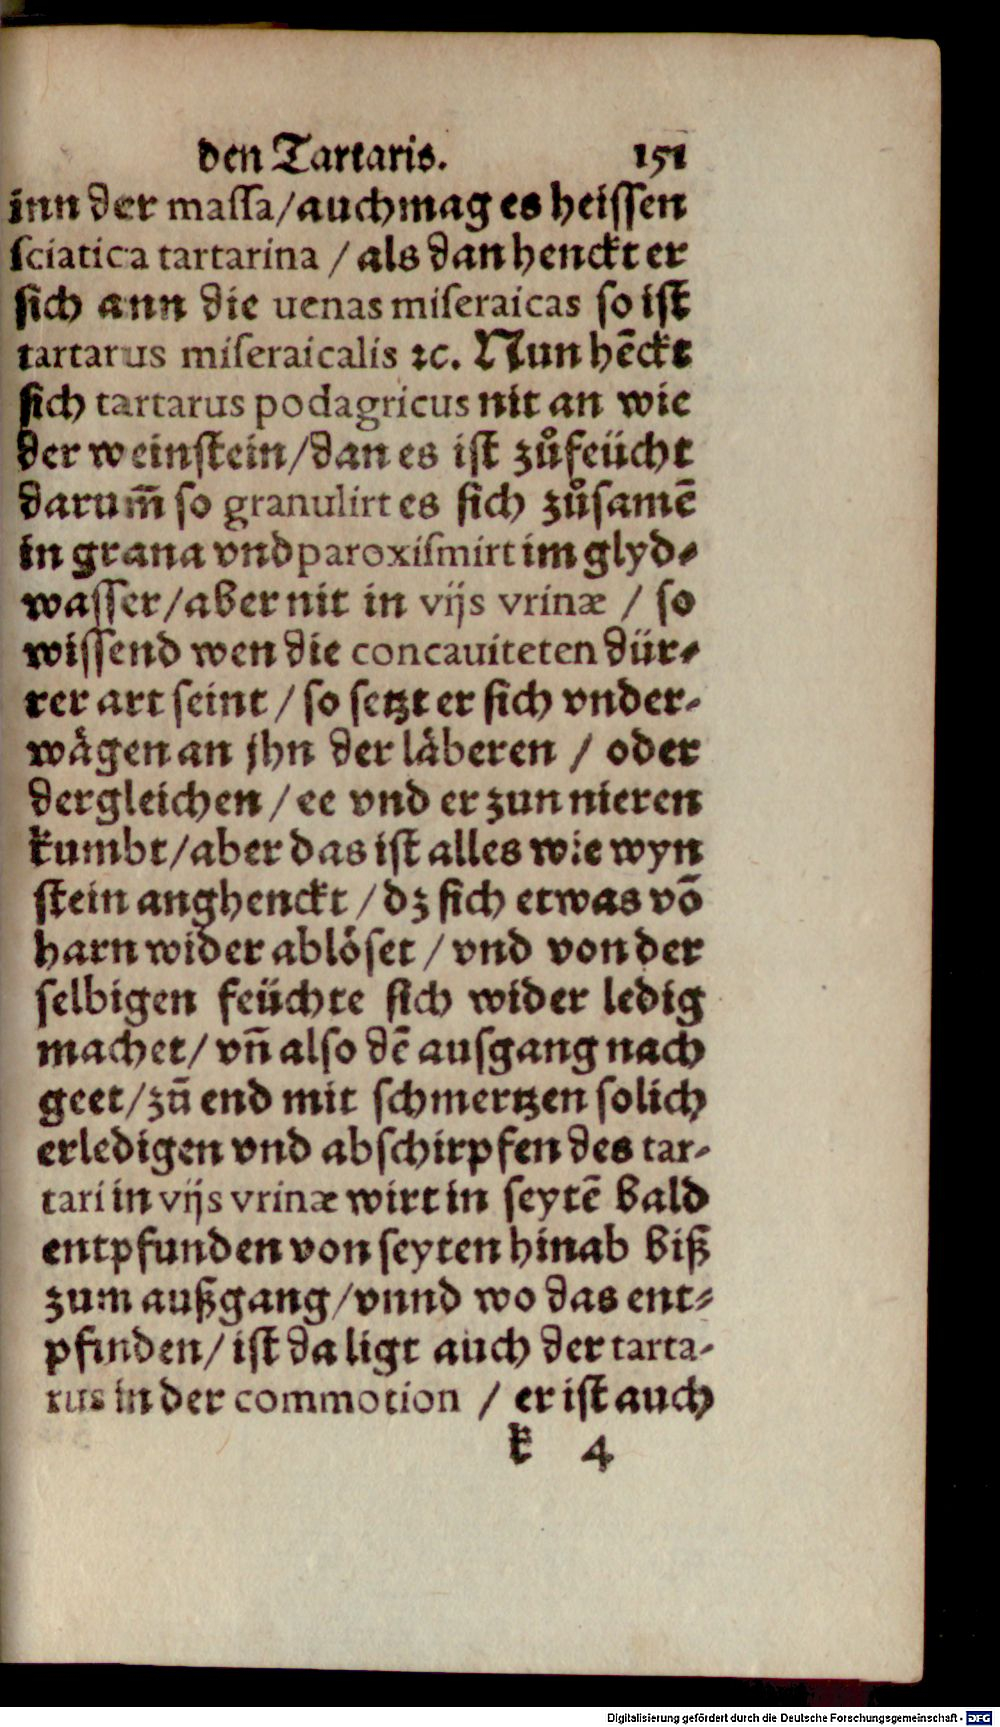 den Tartaris. 151
inn der massa/auch mag es heissen
sciatica tartarina / als dan henckt er
sich ann die uenas miseraicas so ist
tartarus miseraicalis ꝛc. Nun hēckt
sich tartarus podagricus nit an wie
der weinstein/dan es ist zůfeücht
darum̄ so granulirt es sich zůsamē
in grana vnd paroxismirt im glyd⸗
wasser/aber nit in vijs vrinæ / so
wissend wen die concauiteten dür⸗
rer art seint / so setzt er sich vnder⸗
wägen an jhn der läberen / oder
dergleichen / ee vnd er zun nieren
kumbt/aber das ist alles wie wyn
stein anghenckt / dz sich etwas vō
harn wider ablöset / vnd von der
selbigen feüchte sich wider ledig
machet/ vn̄ also dē ausgang nach
geet/zū end mit schmertzen solich
erledigen vnd abschirpfen des tar⸗
tari in vijs vrinæ wirt in seytē bald
entpfunden von seyten hinab biß
zum außgang/vnnd wo das ent⸗
pfinden/ ist da ligt auch der tarta⸗
rus in der commotion / er ist auch
k 4
Digitalisierung gefördert durch die Deutsche Forschungsgemeinschaft - DFG